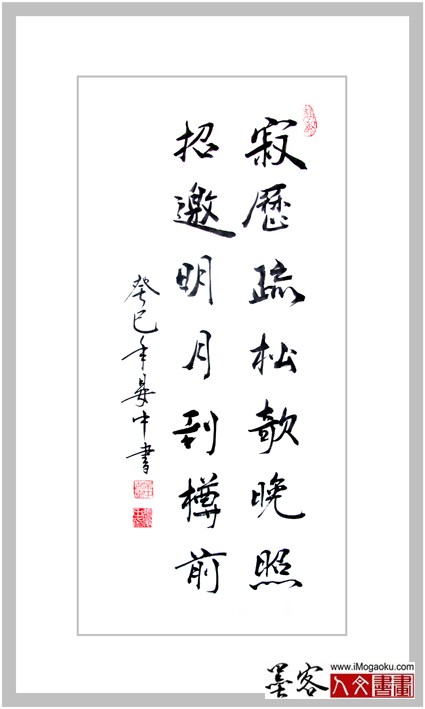 寂歷疏松欹晚照
招邀明月到樽前
癸巳年晏中書
墨客
www.iMogaoku.com
人文書畫